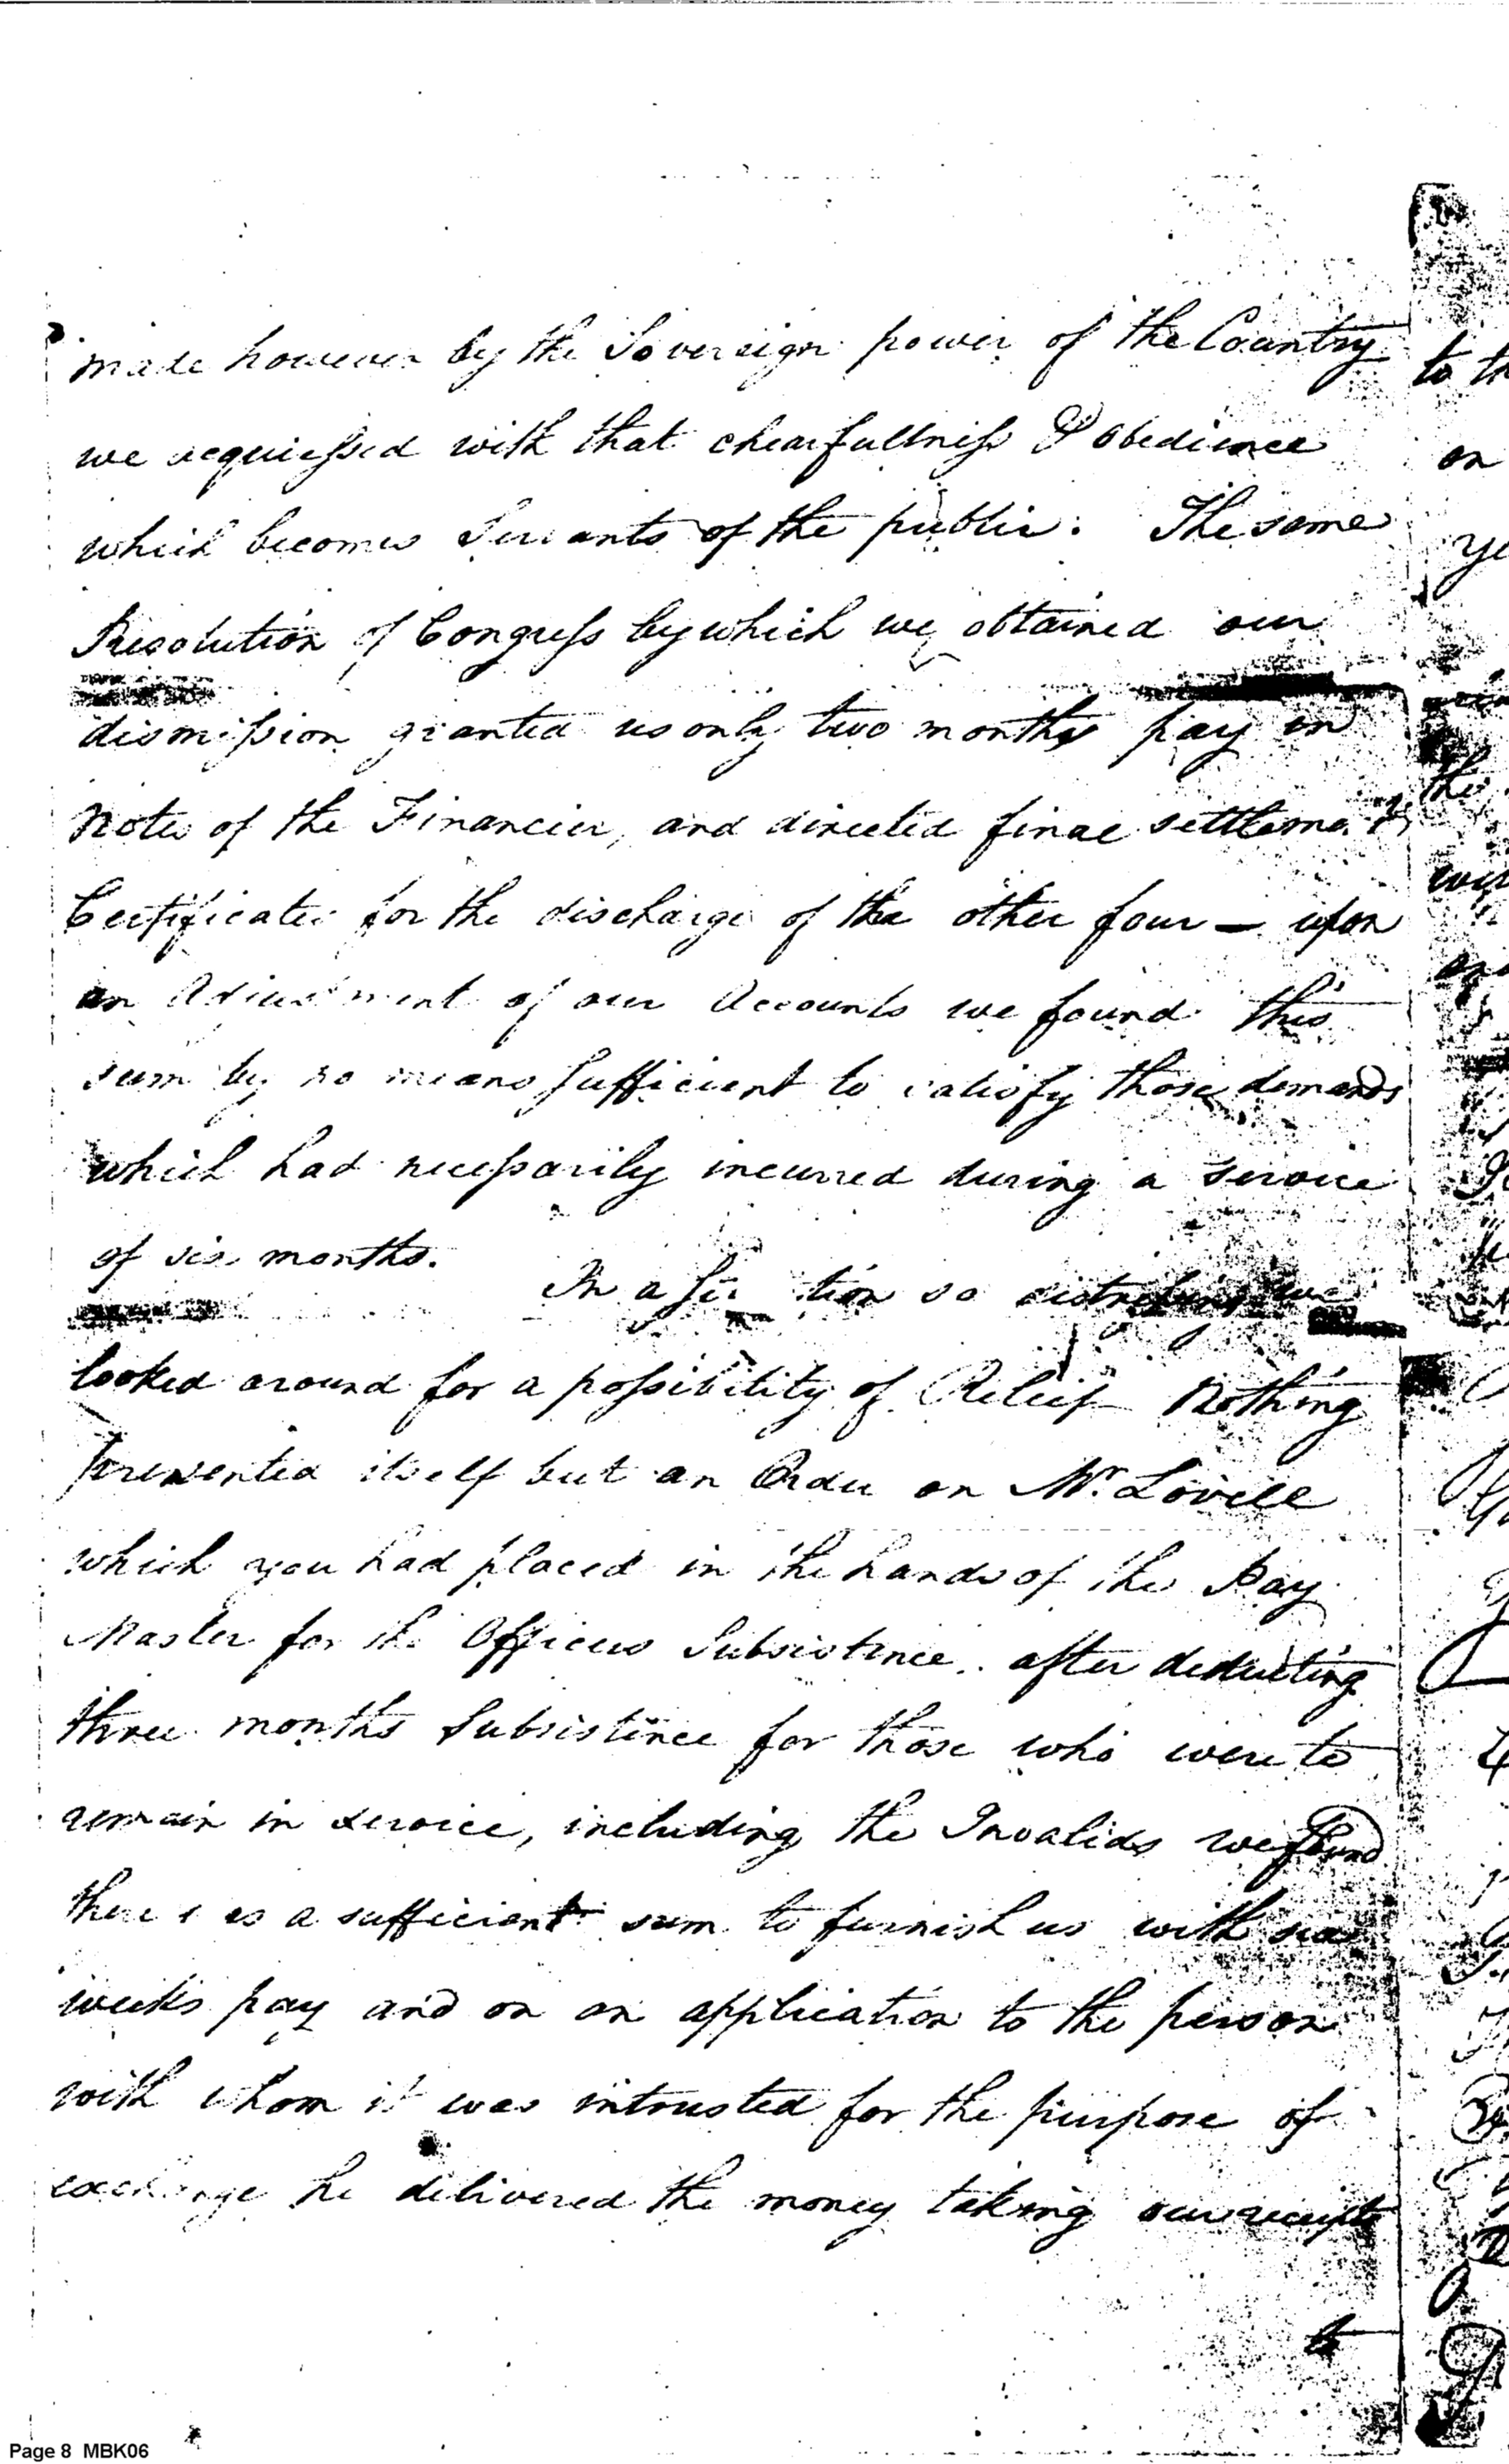 made however by the Sovereign power of the Country
we acquiessed with that chearfullness & obedience
which becomes Servants of the public. The same
Resolution of Congress by which we obtained our
dismission granted us only two months pay in
Notes of the Financier, and directed final settlemt.
Certificates for the discharge of the other four — upon
an Adjustment of our Accounts we found this
sum by no means sufficient to satisfy those demands
which had necessarily incurred during a service
of six months. In a situation so distressing we
looked around for a possibility of Releif Nothing
presented itself but an Order on Mr. Lovell
which you had placed in the hands of the Pay
Master for the Officers Subsistence. after deducting
three months Subsistence for those who were to
remain in service, including the Invalids we found
there was a sufficient sum to furnish us with six
weeks pay and on an application to the person
with whom it was intrusted for the purpose of
exchange he delivered the money taking our receipts
to
Page 8 MBK06